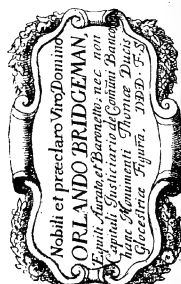 Nobili et præclaro Viro Domino
ORLANDO BRIDGEMAN,
Equiti Aurato, et Baronetto: nec non
Capitali Justiciario de Com̄uni Banco
hanc Monumenti Thomæ Ducis
Glocestriæ Figurā. D.D.D. F.S.